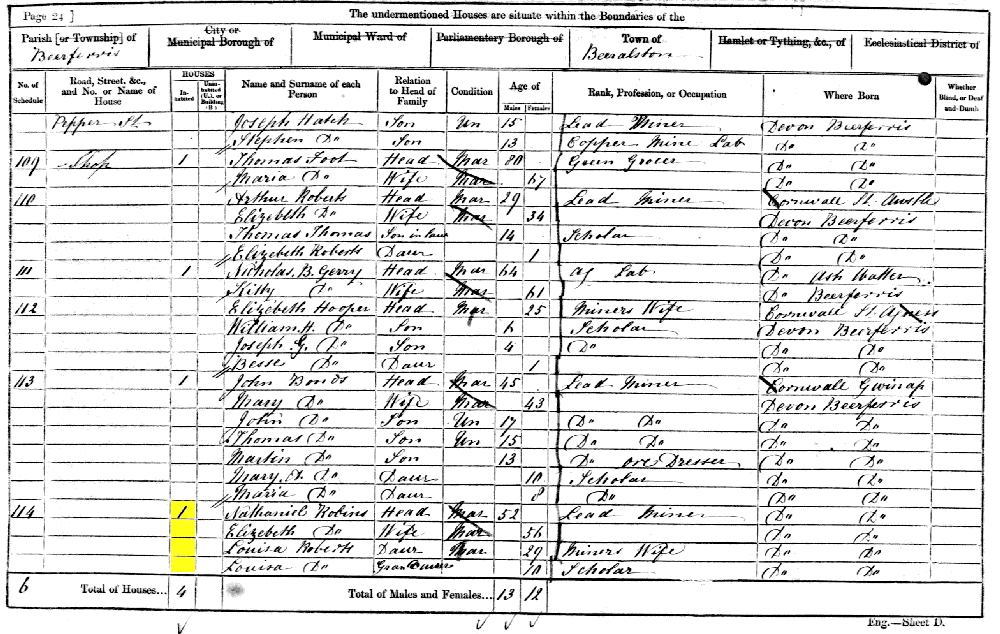 Page 24] The undermentioned Houses are situate within the Boundaries of the
Parish [or Township] of City or Municipal Borough of Municipal Ward of Parliamentary Borough of Town of Hamlet or Tything, &c., of Ecclesiastical District of
Beerferris Beeralston
No. of Schedule Road, Street, &c., and No. or Name of House HOUSES Inhabited Uninhabited (U.) or Building (B.) Name and Surname of each Person Relation to Head of Family Condition Age of Males Females Rank, Profession, or Occupation Where Born Whether Blind, or Deaf-and-Dumb
Pepper St. Joseph Hatch Son Un 15 Lead Miner Devon Beerferris
Stephen Do Son 13 Copper Mine Lab Do Do
109 Shop 1 Thomas Foot Head Mar 80 Green Grocer Do Do
Maria Do Wife Mar 67 Do Do
110 Arthur Roberts Head Mar 29 Lead Miner Cornwall St. Austle
Elizebeth Do Wife Mar 34 Devon Beerferris
Thomas Thomas Son in Law 14 Scholar Do Do
Elizebeth Roberts Daur 1 Do Do
111 1 Nicholas B. Gerry Head Mar 64 Ag Lab Do Ash Watter
Kitty Do Wife Mar 61 Do Beerferris
112 Elizebeth Hooper Head Mar 25 Miners Wife Cornwall St. Agness
William H. Do Son 6 Scholar Devon Beerferris
Joseph G. Do Son 4 Do Do Do
Besse Do Daur 1 Do Do
113 1 John Bonds Head Mar 45 Lead Miner Cornwall Gwinap
Mary Do Wife Mar 43 Devon Beerferris
John Do Son Un 17 Do Do Do Do
Thomas Do Son Un 15 Do Do Do Do
Martin Do Son 13 Do ore Dresser Do Do
Mary A. Do Daur 10 Scholar Do Do
Maria Do Daur 8 Do Do Do
114 1 Nathaniel Robins Head Mar 52 Lead Miner Do Do
Elizebeth Do Wife Mar 56 Do Do
Louisa Roberts Daur Mar 29 Miners Wife Do Do
Louisa Do 10 Scholar Do Do
6 Total of Houses... 4 Total of Males and Females... 13 12
Eng.—Sheet D.